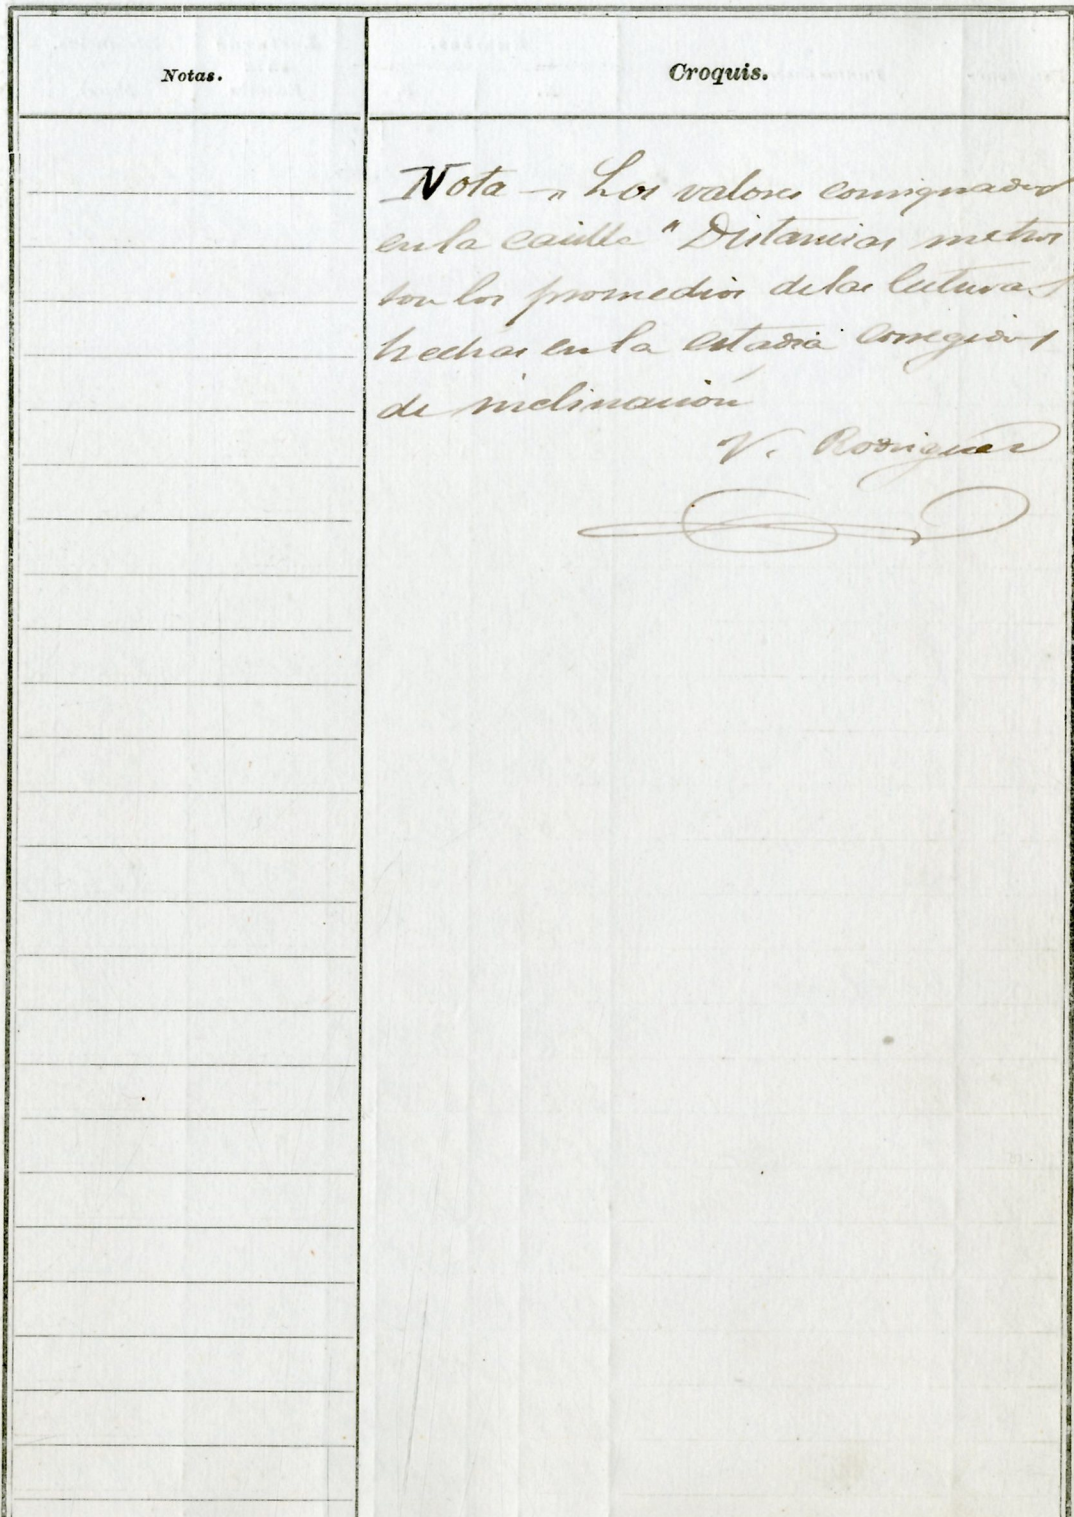 Notas.
Croquis.
Nota —" Los valores consignados
en la casilla "Distancias metros
son los promedios de las lecturas
hechas en la estadia corregidos
de inclinación
V. Rodriguez